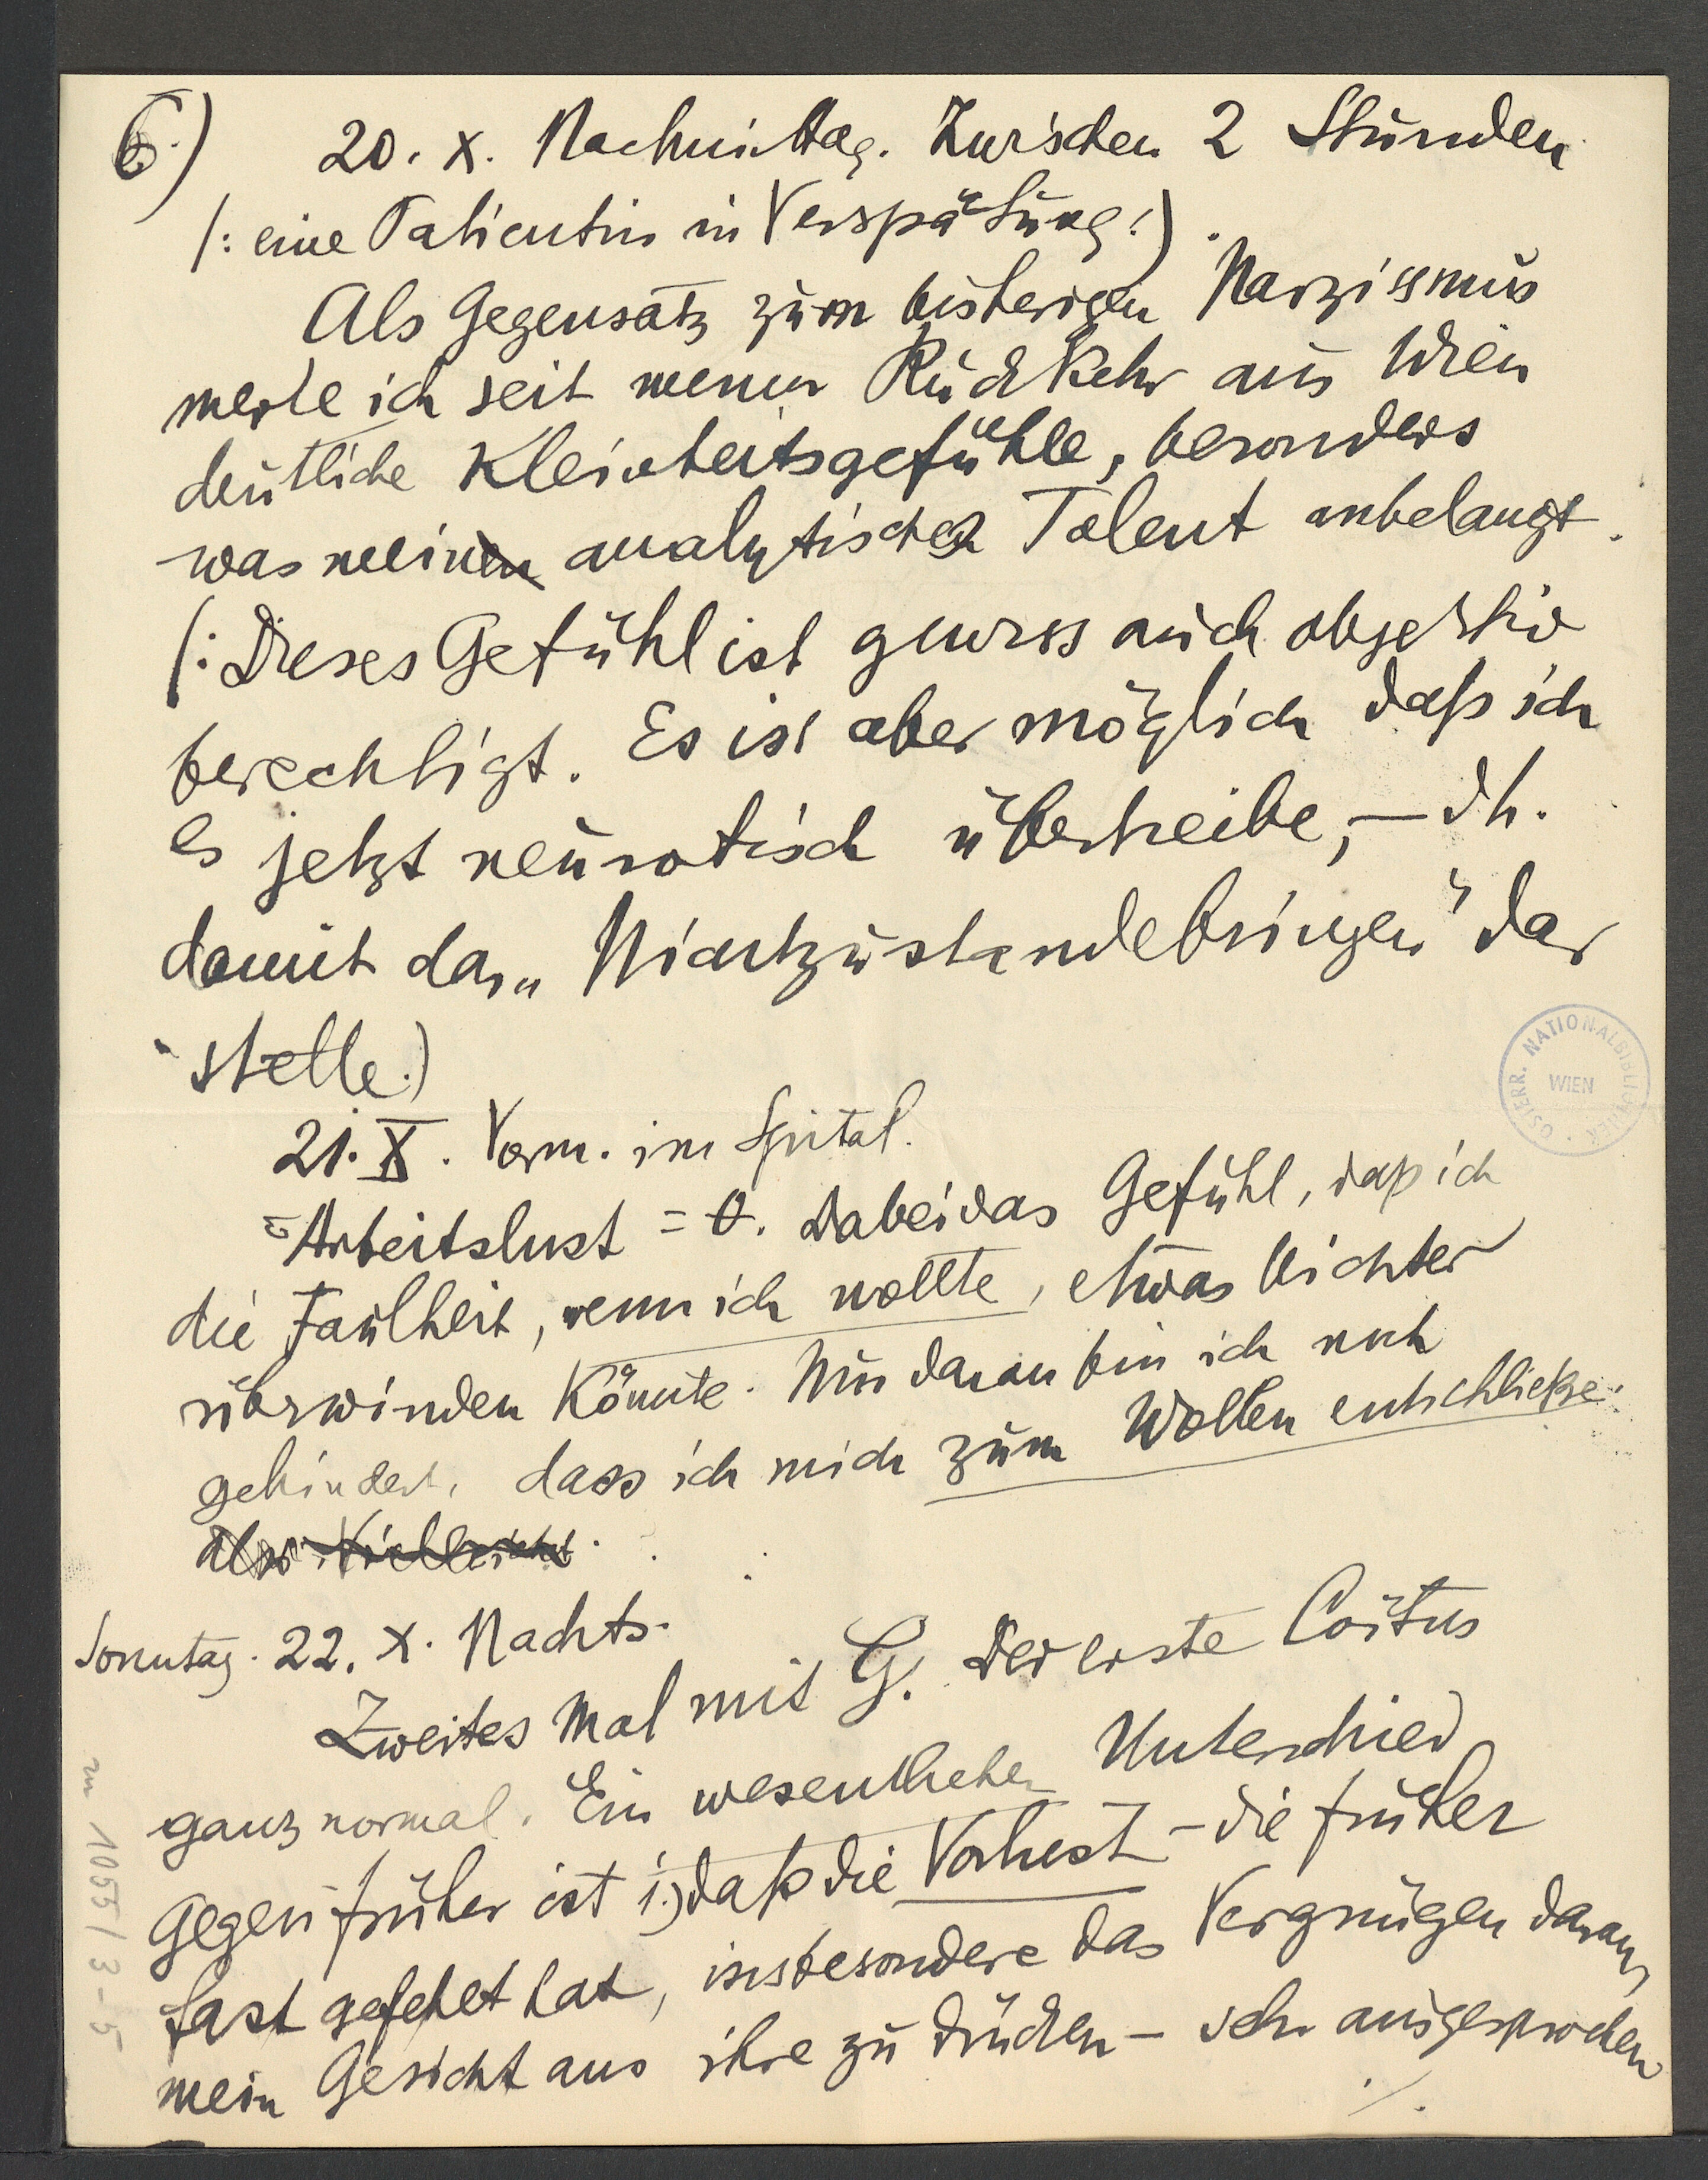 6.) 20. X. Nachmittag. Zwischen 2 Stunden
(: eine Patientin in Verspätung:).
Als Gegensatz zum bisherigen Narzissmus
merke ich seit meiner Rückkehr aus Wien
deutliche Kleinheitsgefühle, besonders
was mein analytisches Talent anbelangt.
(: Dieses Gefühl ist gewiss auch objektiv
berechtigt. Es ist aber möglich daß ich
es jetzt neurotisch übertreibe, — dh.
damit das „Nichtzustandebringen" dar
stelle.)
21. X. Vorm. im Spital.
Arbeitslust = 0. Dabei das Gefühl, daß ich
die Faulheit, wenn ich wollte, etwas leichter
überwinden könnte. Nur daran bin ich noch
gehindert, dass ich mich zum Wollen entschließe.
Also Vielleicht
Sonntag. 22. X. Nachts.
Zweites Mal mit G. Der erste Coitus
ganz normal. Ein wesentlicher Unterschied
gegen früher ist 1.) daß die Vorlust – die früher
fast gefehlt hat, insbesondere das Vergnügen daran,
mein Gesicht ans ihre zu drücken – sehr ausgesprochen
./.
ÖSTERR. NATIONALBIBLIOTHEK
WIEN
1055/3-5